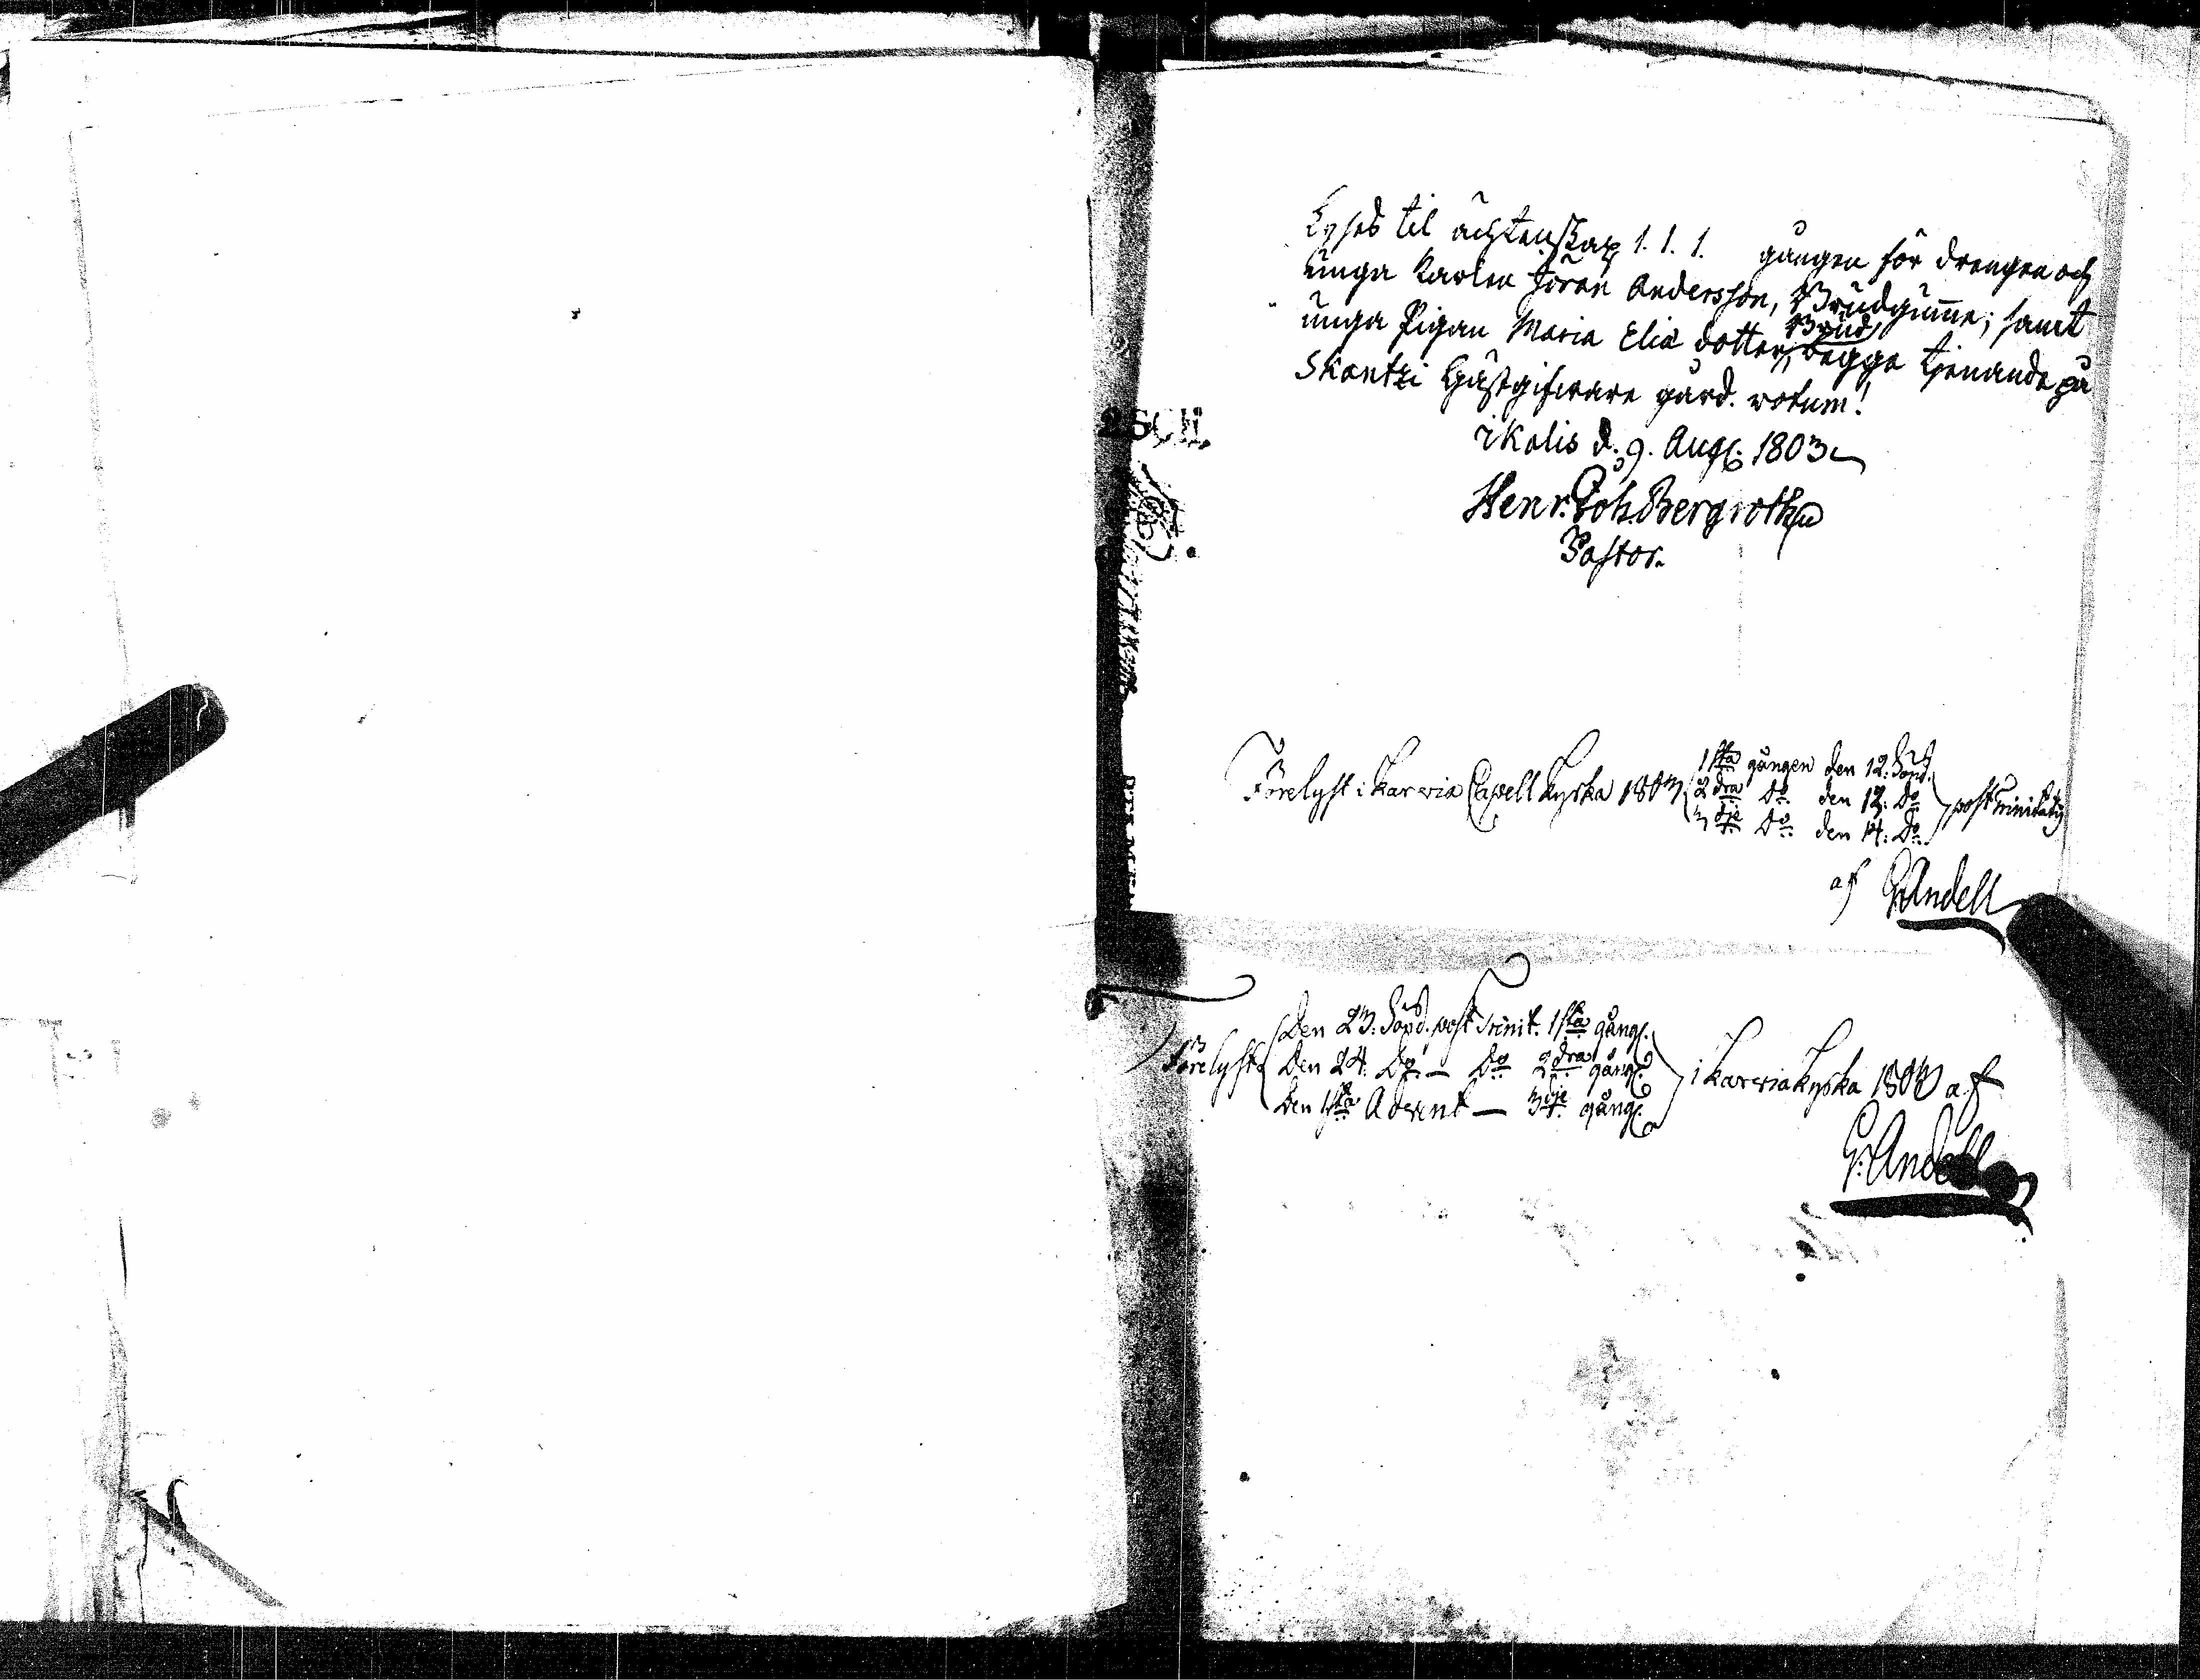 Lyses til ächtenskap 1. 1. 1. gången för drengen och
unga Karlen Jöran Andersson, Brudgumme; samt
unga Pigan Maria Elia dotter, Brud, begge tjenande på
Skantzi Gästgifware gård. votum!
Ikalis d. 9. Aug. 1803
Henr. Joh. Bergroth
Pastor.
2 SCH.
Förelyst i Karvia Capell Kyrka 1803
1sta gången den 12. Sönd.
2dra Do den 13. Do
3dje Do den 14. Do
post Trinitatis
af G. Andell
Förelyst
Den 23. Sönd. post Trinit. 1sta gång.
Den 24. Do — Do 2dra gång.
Den 1sta Advent — 3dje gång.
i Karvia Kyrka 1803 af
G. Andell